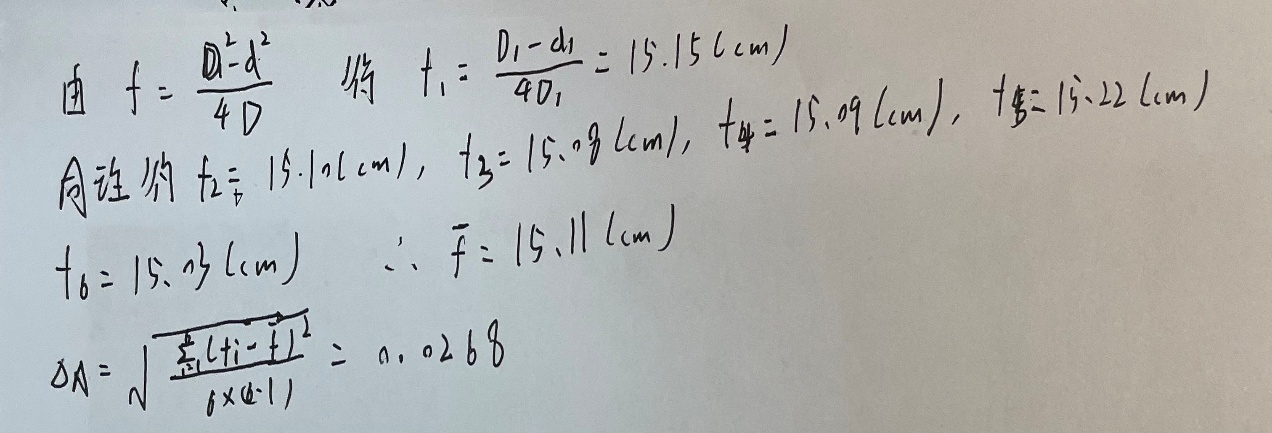 由 f = (D²-d²)/(4D) 得 f₁ = (D₁-d₁)/(4D₁) = 15.15(cm)
同理得 f₂ = 15.10(cm), f₃ = 15.08(cm), f₄ = 15.09(cm), f₅ = 15.22(cm)
f₆ = 15.03(cm) ∴ f̄ = 15.11(cm)
ΔA = √(∑(fi-f̄)²/(6×(6-1))) = 0.0268